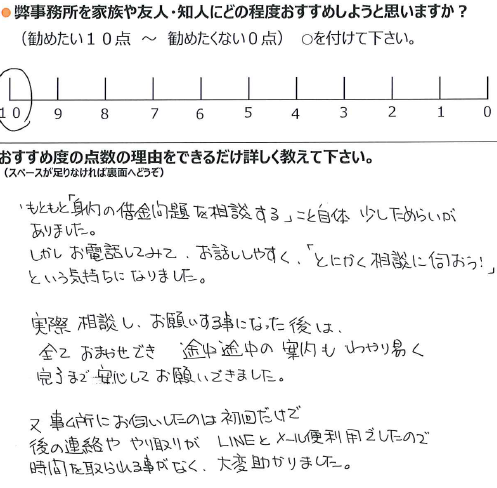 ●弊事務所を家族や友人・知人にどの程度おすすめしようと思いますか？
（勧めたい１０点　～　勧めたくない０点）　○を付けて下さい。
10 9 8 7 6 5 4 3 2 1 0
おすすめ度の点数の理由をできるだけ詳しく教えて下さい。
（スペースが足りなければ裏面へどうぞ）
もともと「身内の借金問題を相談する」こと自体 少しためらいが
ありました。
しかし お電話してみて、お話ししやすく、「とにかく相談に伺おう!」
という気持ちになりました。
実際 相談し、お願いする事になった後は、
全て おまかせでき 途中途中の案内も わかり易く
完了まで安心してお願いできました。
又 事ム所にお伺いしたのは初回だけで
後の連絡や やり取りが LINEと メール便利用でしたので
時間を取られる事がなく、大変助かりました。